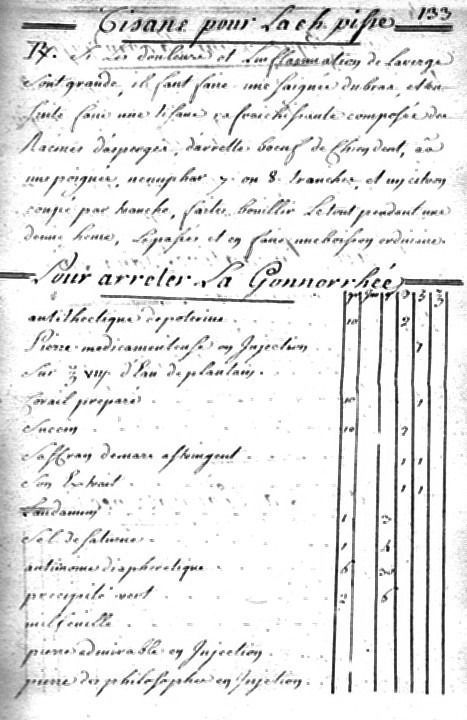 Tisane pour La ch. pisse 133
Rx. Si Les douleurs et L'inflammation de La verge
sont grande, il faut faire une saignée du bras, et en
suite faire une tisane rafraichissante composée des
Racines d'asperges, d'arrette boeuf de Chiendent, aa
une poignée, nenuphar 7 ou 8 tranches, et un citron
coupé par tranche, faites bouillir Le tout pendant une
demie heure, Le passés et en faire une boisson ordinaire.
Pour arreter La Gonnorrhée
antithectique de poterius
Pierre medicamenteuse en Injection
Sur ℥ viij. d'Eau de plantain.
Corail preparé
Succin
Saffran de mars astringent
Son Extrait
Laudanum
Sel de saturne
antimoine diaphoretique
precipité vert
milfeuille
pierre admirable en Injection.
pierre des philosophes en Injection